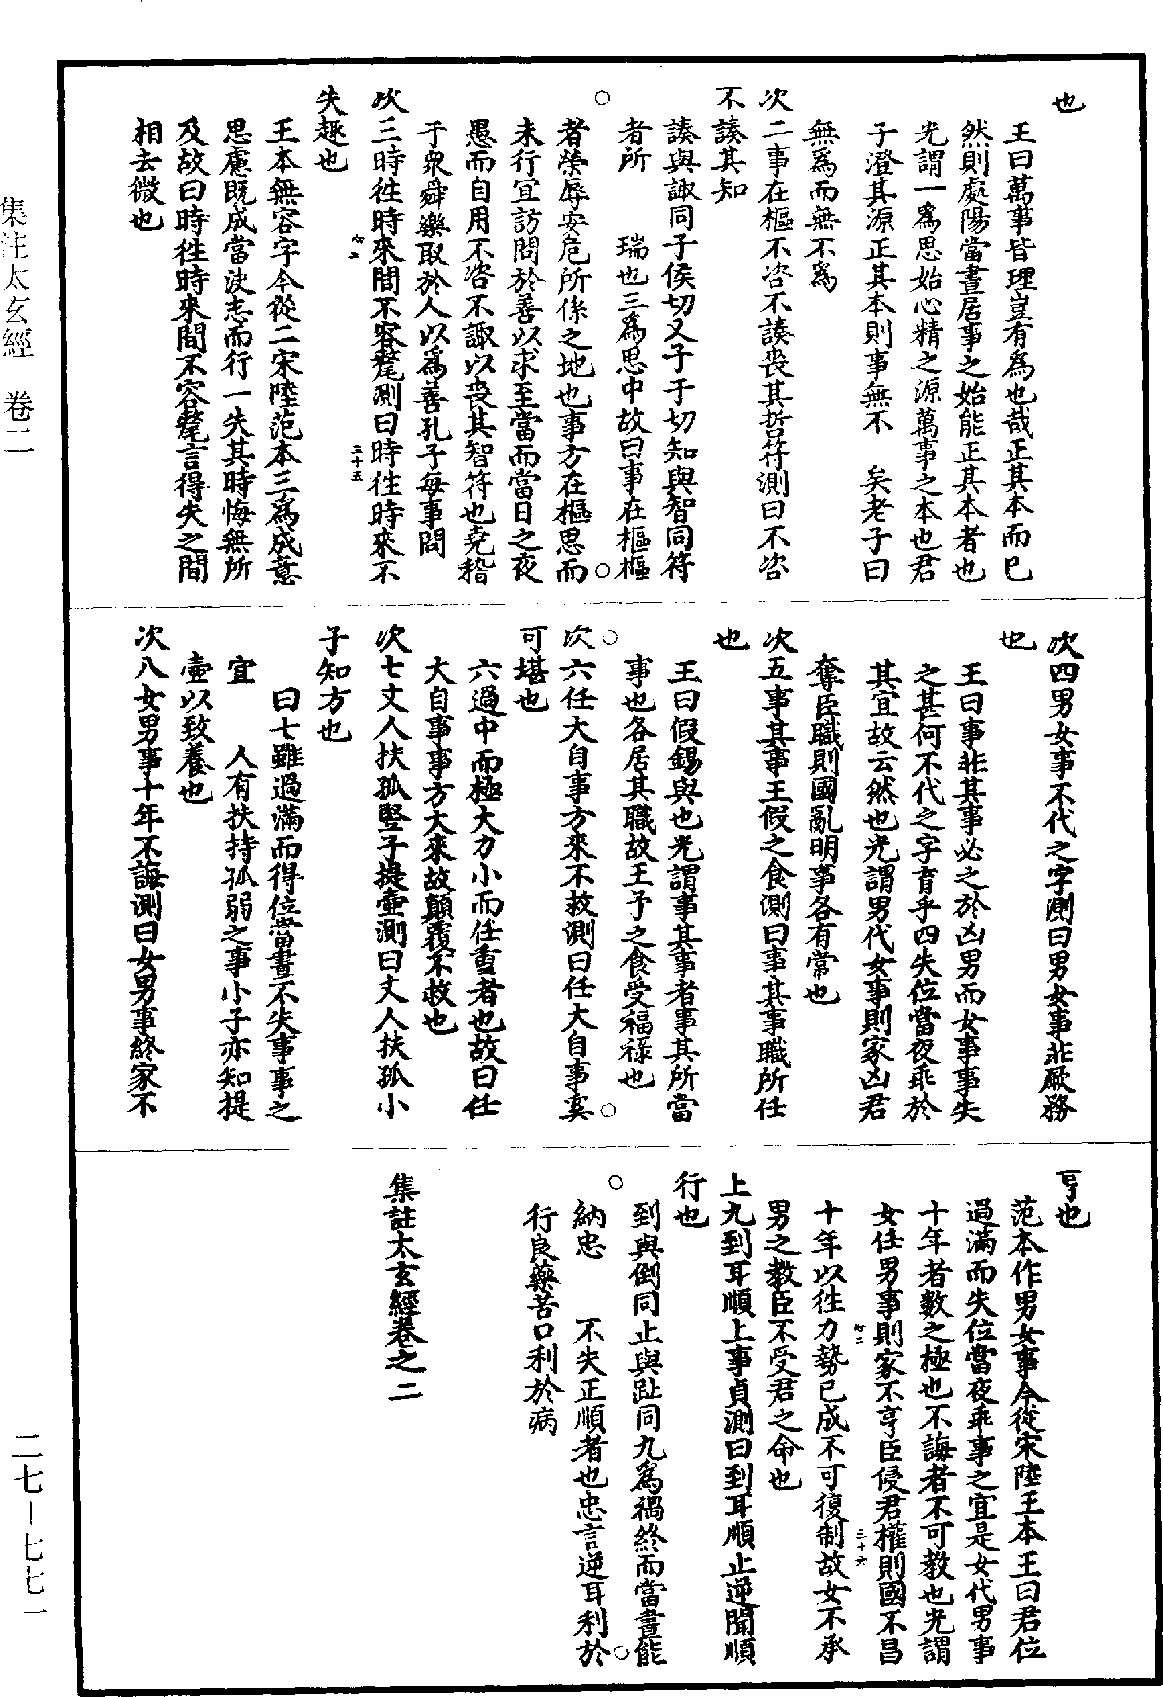 也
王曰萬事皆理豈有為也哉正其本而已
然則處陽當晝居事之始能正其本者也
光謂一為思始心精之源萬事之本也君
子澄其源正其本則事無不 矣老子曰
無為而無不為
次二事在樞不咨不諏喪其哲符測曰不咨
不諏其知
諏與諏同子侯切又子于切知與智同符
者所 瑞也三為思中故曰事在樞樞
者榮辱安危所係之地也事方在樞思而
未行宜訪問於善以求至當而當日之夜
愚而自用不咨不諏以喪其智符也堯稽
于眾舜樂取於人以為善孔子每事問
次三時往時來間不容氂測曰時往時來不
失趣也
王本無容字今從二宋陸范本三為成意
思慮既成當決志而行一失其時悔無所
及故曰時往時來間不容氂言得失之間
相去微也
次四男女事不代之字測曰男女事非厥務
也
王曰事非其事必之於凶男而女事事失
之甚何不代之字育乎四失位當夜乖於
其宜故云然也光謂男代女事則家凶君
奪臣職則國亂明事各有常也
次五事其事王假之食測曰事其事職所任
也
王曰假錫與也光謂事其事者事其所當
事也各居其職故王予之食受福祿也
次六任大自事方來不救測曰任大自事奚
可堪也
六過中而極大力小而任重者也故曰任
大自事事方大來故顛覆不救也
次七丈人扶孤豎子提壺測曰丈人扶孤小
子知方也
曰七雖過滿而得位當晝不失事事之
宜 人有扶持孤弱之事小子亦知提
壺以致養也
次八女男事十年不誨測曰女男事終家不
亨也
范本作男女事今從宋陸王本王曰君位
過滿而失位當夜乖事之宜是女代男事
十年者數之極也不誨者不可教也光謂
女任男事則家不亨臣侵君權則國不昌
十年以往力勢已成不可復制故女不承
男之教臣不受君之命也
上九到耳順止事貞測曰到耳順止逆聞順
行也
到與倒同止與趾同九為禍終而當晝能
納忠 不失正順者也忠言逆耳利於
行良藥苦口利於病
集註太玄經卷之二
集注太玄經 卷二
二七—七七一